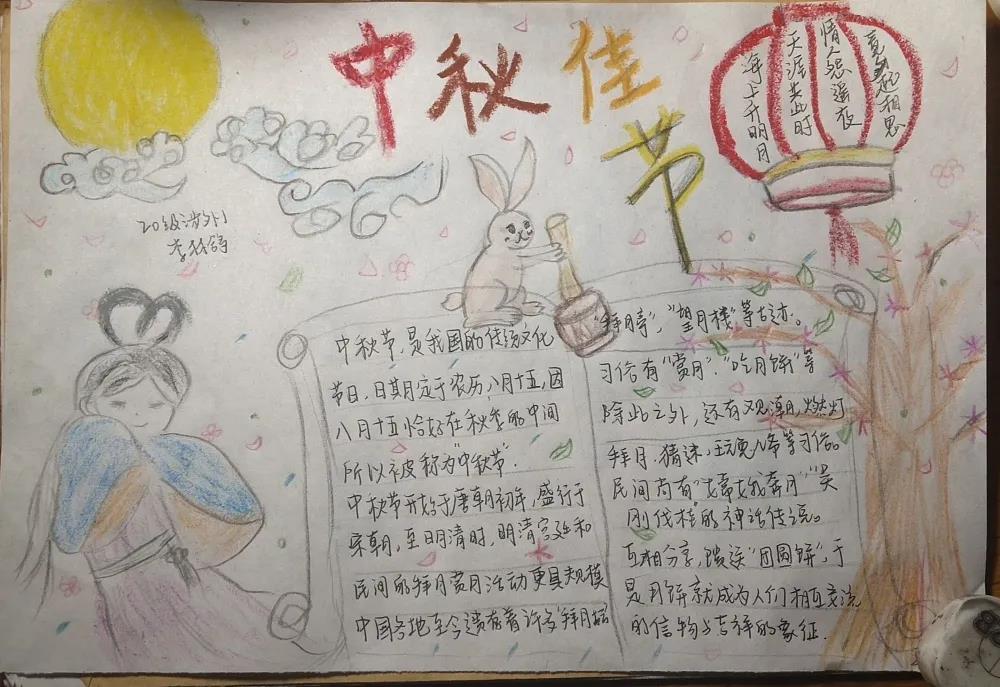 中秋佳节
海上升明月
天涯共此时
情人怨遥夜
竟夕起相思
20级涉外1
中秋节,是我国的传统文化
节日,日其月定于农历八月十五,因
八月十五恰好在秋季的中间
所以被称为"中秋节".
中秋节开始于唐朝初年,盛行于
宋朝,至明清时,明清宫廷和
民间的拜月赏月活动更具规模
中国各地至今遗存着许多"拜月坛
"拜月亭","望月楼"等古迹。
习俗有"赏月"."吃月饼"等
除此之外,还有观潮,燃灯
拜月.猜谜,玩兔儿爷等习俗。
民间尚有"嫦娥奔月""吴
刚伐桂的神话传说。
互相分享,赠送"团圆饼",于
是月饼就成为人们相互交流
的信物与吉祥的象征.